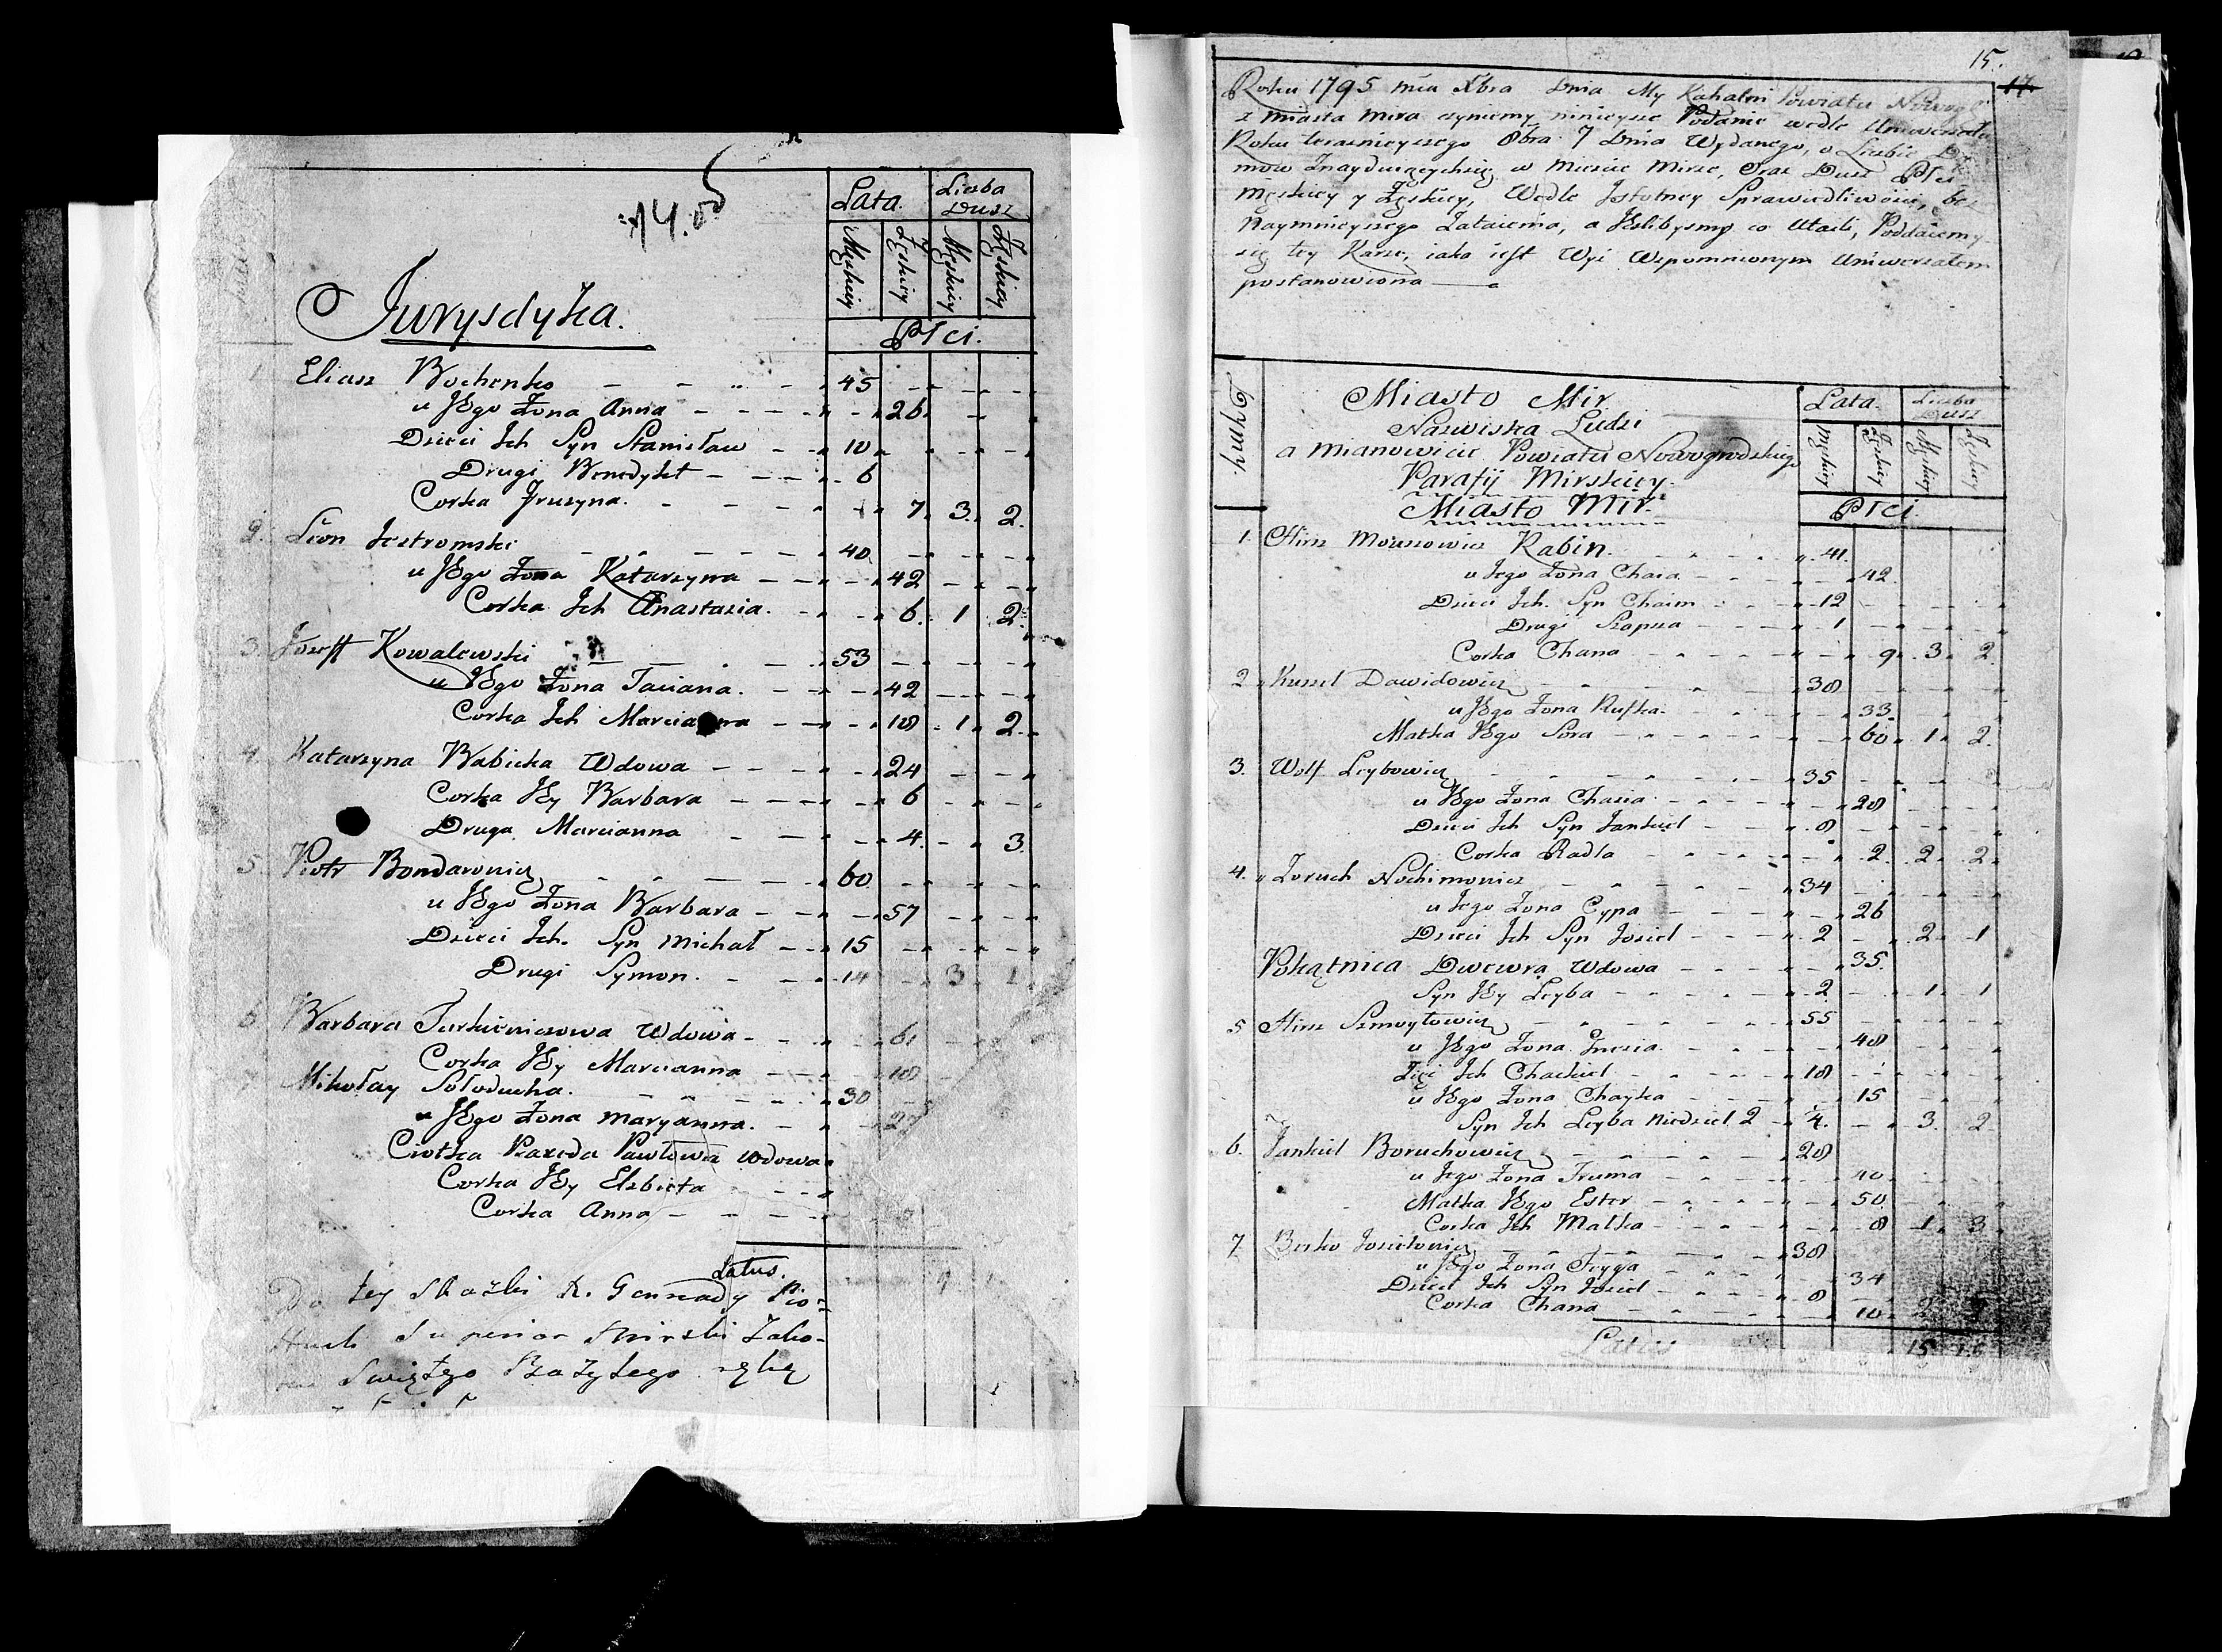 14.
Lata. Liczba Dusz
Męskiey Żęskiey Męskiey Żęskiey
Jurysdyka.
Płci.
1. Eliasz Bochenko 45
u Jego Żona Anna 26
Dzieci Ich Syn Stanisław 10
Drugi Benedykt 6
Corka Jruzyna. 7. 3. 2.
2. Leon Jestromski 40
u Jego Żona Katarzyna 42
Corka Ich Anastazia. 6. 1 2
3. Jozeff Kowalewski 53
u Jego Żona Taciana. 42
Corka Ich Marcianna 18 1 2
4. Katarzyna Babicka Wdowa 24
Corka Jey Barbara 6
Druga Marcianna 4. 3.
5. Piotr Bondarowicz 60
u Jego Żona Barbara 57
Dzieci Ich. Syn Michał 15
Drugi Symon. 14 3 1
6 Barbara Wdowa 61
Corka Jey Marcianna 18
Mikołay Sołoducha. 30
u Jego Żona Maryanna. 27
Ciotka Pawłowa Wdowa
Corka Jey Elzbieta
Corka Anna
Latus. 9
Do tey Skazki X. Gennady
Superior Mirski Zako-
Swiętego Bazylego ręką
15.
17.
Roku 1795 mca Xbra Dnia My Kahalni Powiatu
z Miasta Mira czyniemy ninieysze Podanie wedle Uniwersału
Roku teraznieyszego 8bra 7 Dnia Wydanego, o Liczbie
mow Znayduiących się w Miescie Mirze, Oraz Dusz Płci
Męskiey y Żęskiey, Wedle Jstotney Sprawiedliwości, bez
Naymnieyszego Zataienia, a Jeslibysmy co Utaili, Poddaiemy
się tey Karze, iaka iest Wyż Wspomnionym Uniwersałem
postanowiona
Dymy
Miasto Mir Lata. Liczba Dusz
Nazwiska Ludzi
Męskiey Żęskiey Męskiey Żęskiey
a Mianowicie Powiatu Nowogrodzkiego
Parafij Mirskiey.
Miasto Mir. Płci
1. Hirsz Mowszowicz Rabin. 41.
u Jego Żona Chaia 42
Dzieci Ich. Syn Chaim 12
Drugi Szapsza 1
Corka Chana 9 3 2
2 Kussel Dawidowicz 38
u Jego Żona Rufka. 33
Matka Jego Sora 60 1 2.
3. Wolf Leybowicz 35
u Jego Żona Chasia 28
Dzieci Ich Syn Jankiel 8
Corka Radla 2 2 2
4. Zoruch Nochimowicz 34
u Jego Żona Cypa 26
Dzieci Ich Syn Josiel 2 2 1
Pokątnica Dwewra Wdowa 35.
Syn Jey Leyba 2 1 1
5 Hirsz Szmoyłowicz 55
u Jego Żona Gnesia. 48
Zięć Ich Chackiel 18
u Jego Żona Chayka 15
Syn Ich Leyba Niedziel 2 4. 3. 2
6. Jankiel Boruchowicz 28
u Jego Żona Fruma 40
Matka Jego Ester 50
Corka Ich Malka 8 1 3
7 Berko Josielowicz 38
u Jego Żona Feyga 34
Dzieci Ich Syn Josiel 8
Corka Chana 10 2
Latus 15